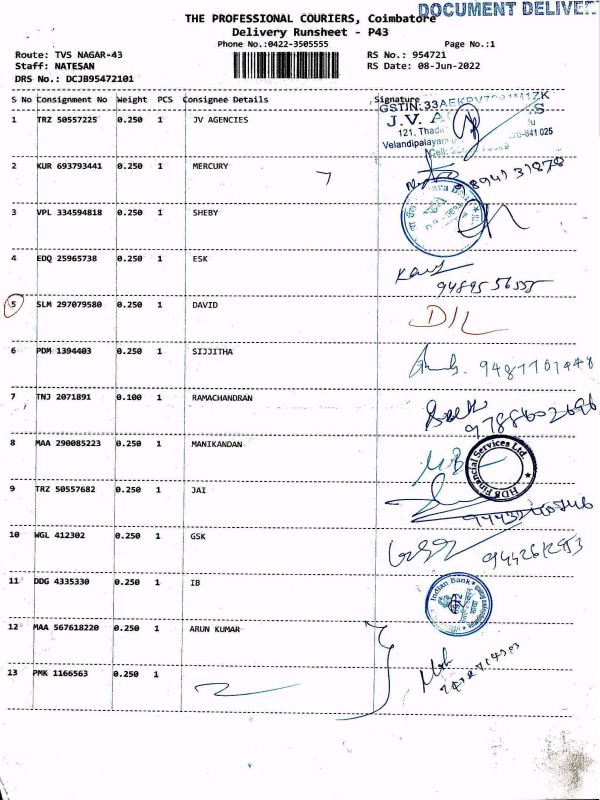 DOCUMENT DELIVER
THE PROFESSIONAL COURIERS, Coimbatore
Delivery Runsheet - P43
Phone No.:0422-3505555
Page No.:1
Route: TVS NAGAR-43
Staff: NATESAN
DRS No.: DCJB95472101
RS No.: 954721
RS Date: 08-Jun-2022
S No Consignment No Weight PCS Consignee Details Signature
1 TRZ 50557225 0.250 1 JV AGENCIES
GSTIN: 33AEKPV
J.V. A
121, Thada
Velandipalayam
641 025
Cell:
2 KUR 693793441 0.250 1 MERCURY
3 VPL 334594818 0.250 1 SHEBY
4 EDQ 25965738 0.250 1 ESK
9489556555
5 SLM 297079580 0.250 1 DAVID
D/L
6 PDM 1394403 0.250 1 SIJJITHA
9487701448
7 TNJ 2071891 0.100 1 RAMACHANDRAN
9788602696
8 MAA 290085223 0.250 1 MANIKANDAN
HDB Financial Services Ltd.
9 TRZ 50557682 0.250 1 JAI
10 WGL 412302 0.250 1 GSK
9442612953
11 DDG 4335330 0.250 1 IB
Indian Bank
12 MAA 567618220 0.250 1 ARUN KUMAR
13 PMK 1166563 0.250 1